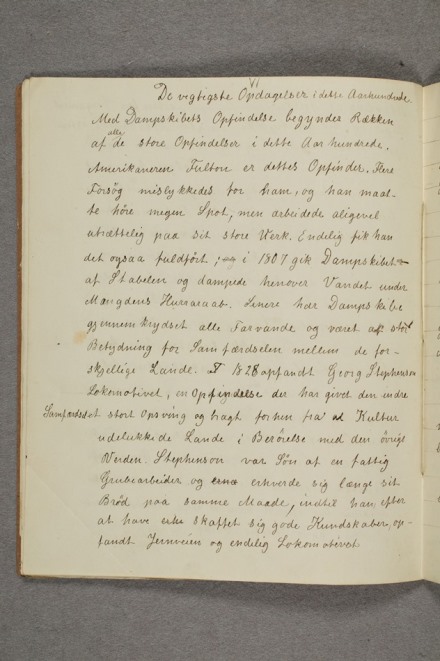 VI
De vigtigste Opdagelser i dette Aarhundrede
Med Dampskibets Opfindelse begynder Rækken
af alle de store Opfindelser i dette Aarhundrede.
Amerikaneren Fulton er dettes Opfinder. Flere
Forsøg mislykkedes for ham, og han maat-
te høre megen Spot, men arbeidede aligevel
utrættelig paa sit store Værk. Endelig fik han
det ogsaa fuldført; i 1807 gik Dampskibet
af Stabelen og dampede henover Vandet under
Mængdens Hurraraab. Senere har Dampskibe
gjennemkrydset alle Farvande og været af stor
Betydning for Samfærdselen mellem de for-
skjellige Lande. I 1828 opfandt Georg Stephenson
Lokomotivet, en Opfindelse der har givet den indre
Samfærdsel et stort Opsving og bragt forhen fra al Kultur
udelukkede Lande i Berørelse med den øvrige
Verden. Stephenson var Søn af en fattig
Grubearbeider og erhverde sig længe sit
Brød paa samme Maade, indtil han efter
at have skaffet sig gode Kundskaber, op-
fandt Jernveien og endelig Lokomotivet